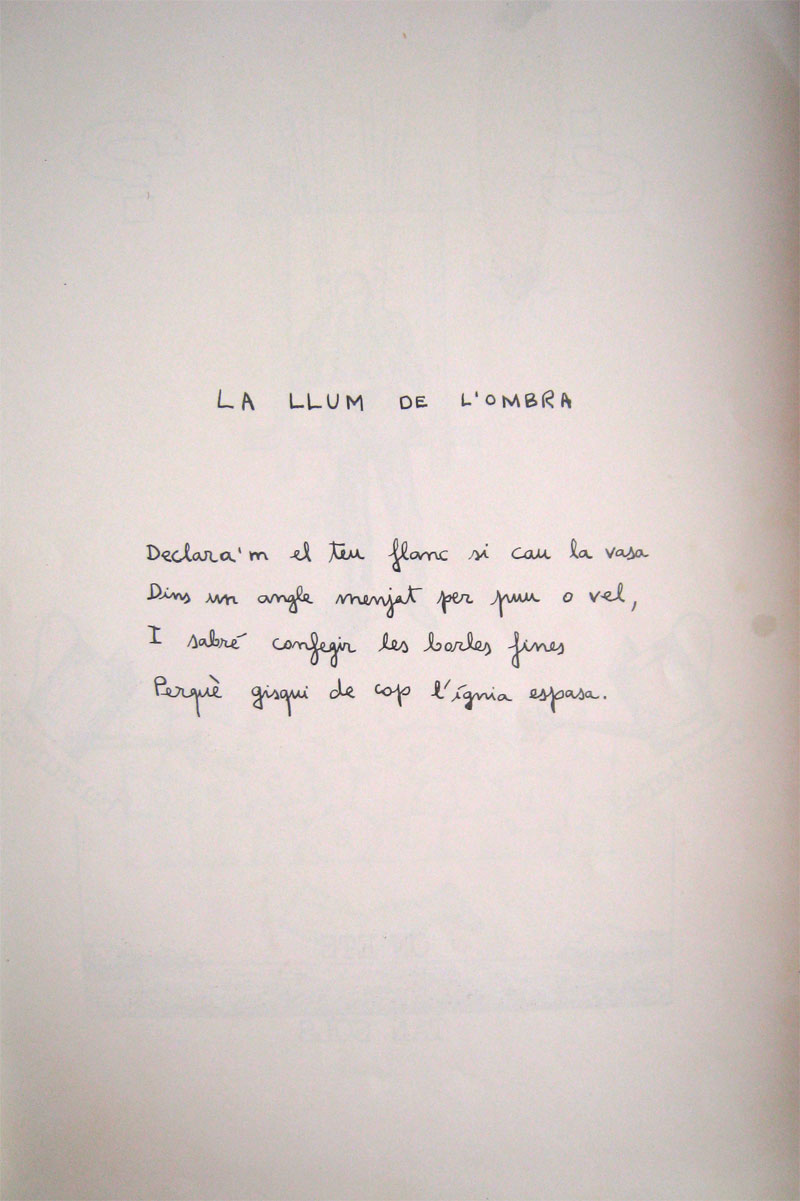 LA LLUM DE L'OMBRA
Declara'm el teu flanc si cau la vasa
Dins un angle menjat per puu o vel,
I sabré confegir les borles fines
Perquè gisqui de cop l'ígnia espasa.
UN ETE
TAN SOLS